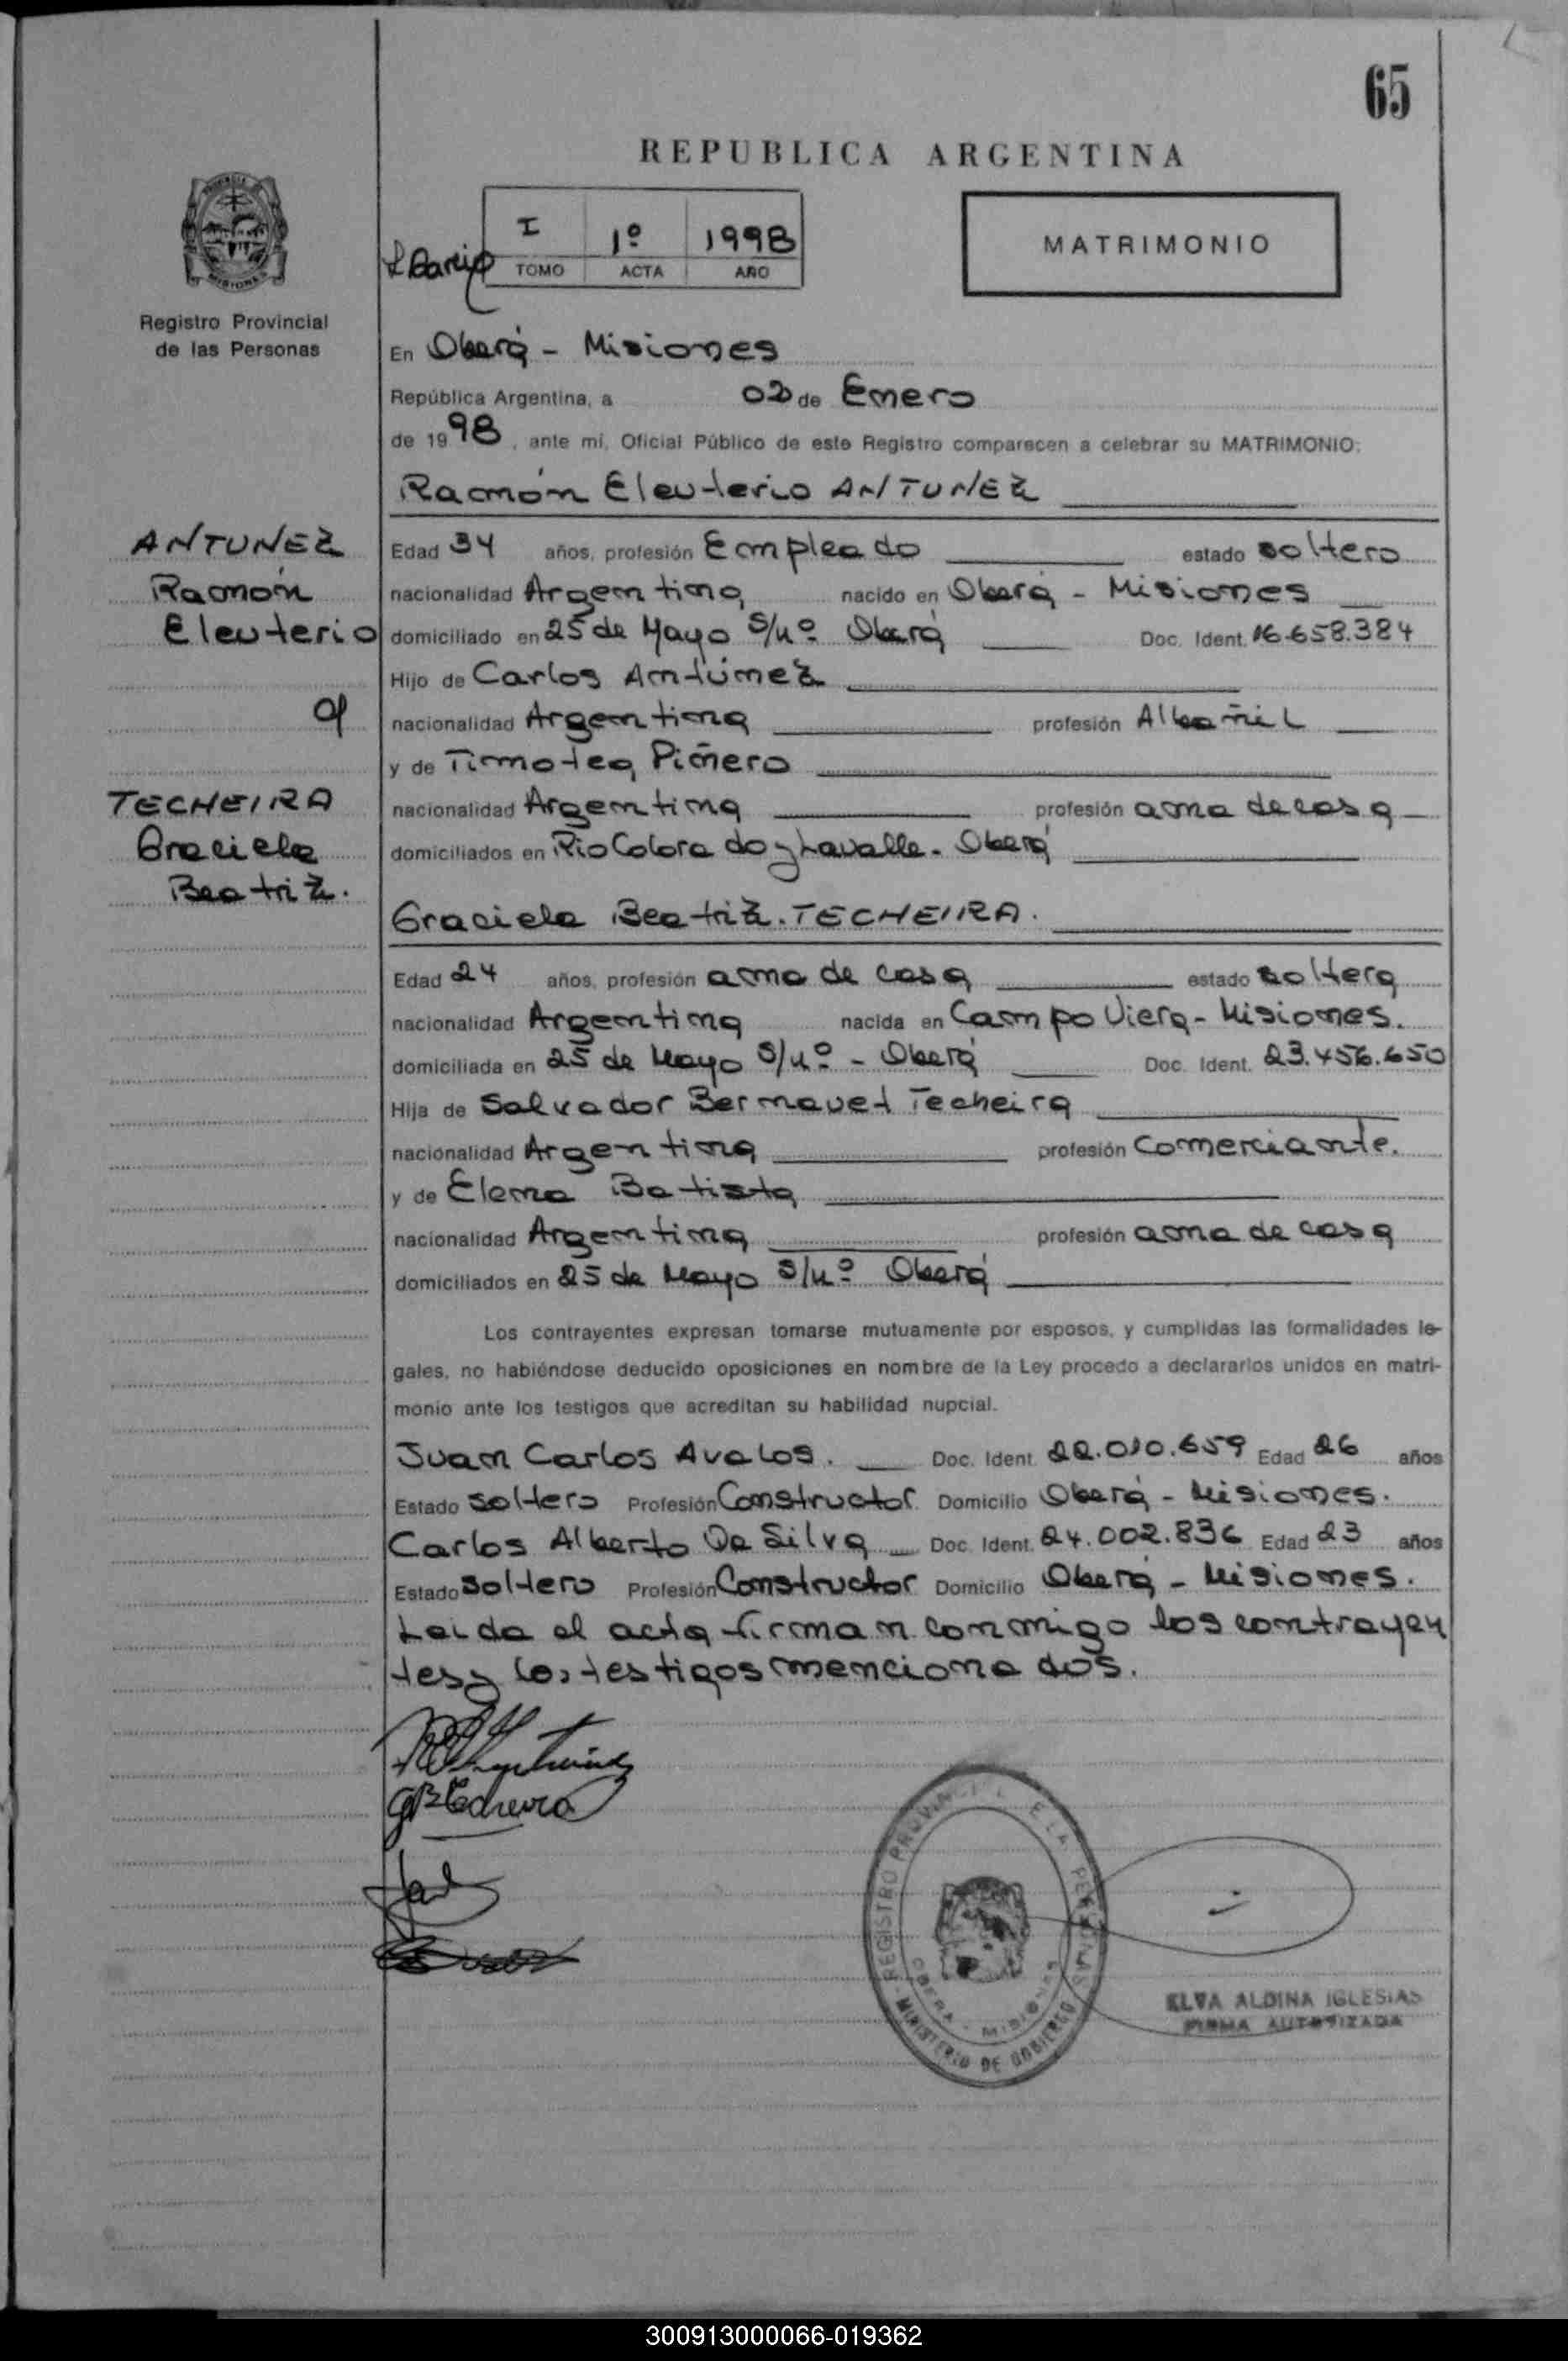 65
REPUBLICA ARGENTINA
I 1º 1998
TOMO ACTA AÑO
MATRIMONIO
Registro Provincial
de las Personas
En Oberá - Misiones
República Argentina, a 02 de Enero
de 1998, ante mí, Oficial Público de este Registro comparecen a celebrar su MATRIMONIO:
Ramón Eleuterio ANTUNEZ
ANTUNEZ
Ramón
Eleuterio
TECHEIRA
Graciela
Beatriz.
Edad 34 años, profesión Empleado estado soltero
nacionalidad Argentina nacido en Oberá - Misiones
domiciliado en 25 de Mayo S/Nº Oberá Doc. Ident. 16.658.384
Hijo de Carlos Antúnez
nacionalidad Argentina profesión Albañil
y de Timotea Piñero
nacionalidad Argentina profesión ama de casa
domiciliados en Rio Colorado y Lavalle - Oberá
Graciela Beatriz. TECHEIRA.
Edad 24 años, profesión ama de casa estado soltera
nacionalidad Argentina nacida en Campo Viera - Misiones.
domiciliada en 25 de Mayo S/Nº - Oberá Doc. Ident. 23.456.650
Hija de Salvador Bernavet Techeira
nacionalidad Argentina profesión Comerciante.
y de Elena Batista
nacionalidad Argentina profesión ama de casa
domiciliados en 25 de Mayo S/Nº Oberá
Los contrayentes expresan tomarse mutuamente por esposos, y cumplidas las formalidades le-
gales, no habiéndose deducido oposiciones en nombre de la Ley procedo a declararlos unidos en matri-
monio ante los testigos que acreditan su habilidad nupcial.
Juan Carlos Avalos. Doc. Ident. 22.010.659 Edad 26 años
Estado soltero Profesión Constructor Domicilio Oberá - Misiones.
Carlos Alberto Da Silva Doc. Ident. 24.002.836 Edad 23 años
Estado soltero Profesión Constructor Domicilio Oberá - Misiones.
Leida el acta firman conmigo los contrayen
tes y los testigos mencionados.
REGISTRO PROVINCIAL DE LAS PERSONAS
OBERA - MISIONES
MINISTERIO DE GOBIERNO
ELVA ALDINA IGLESIAS
FIRMA AUTORIZADA
300913000066-019362